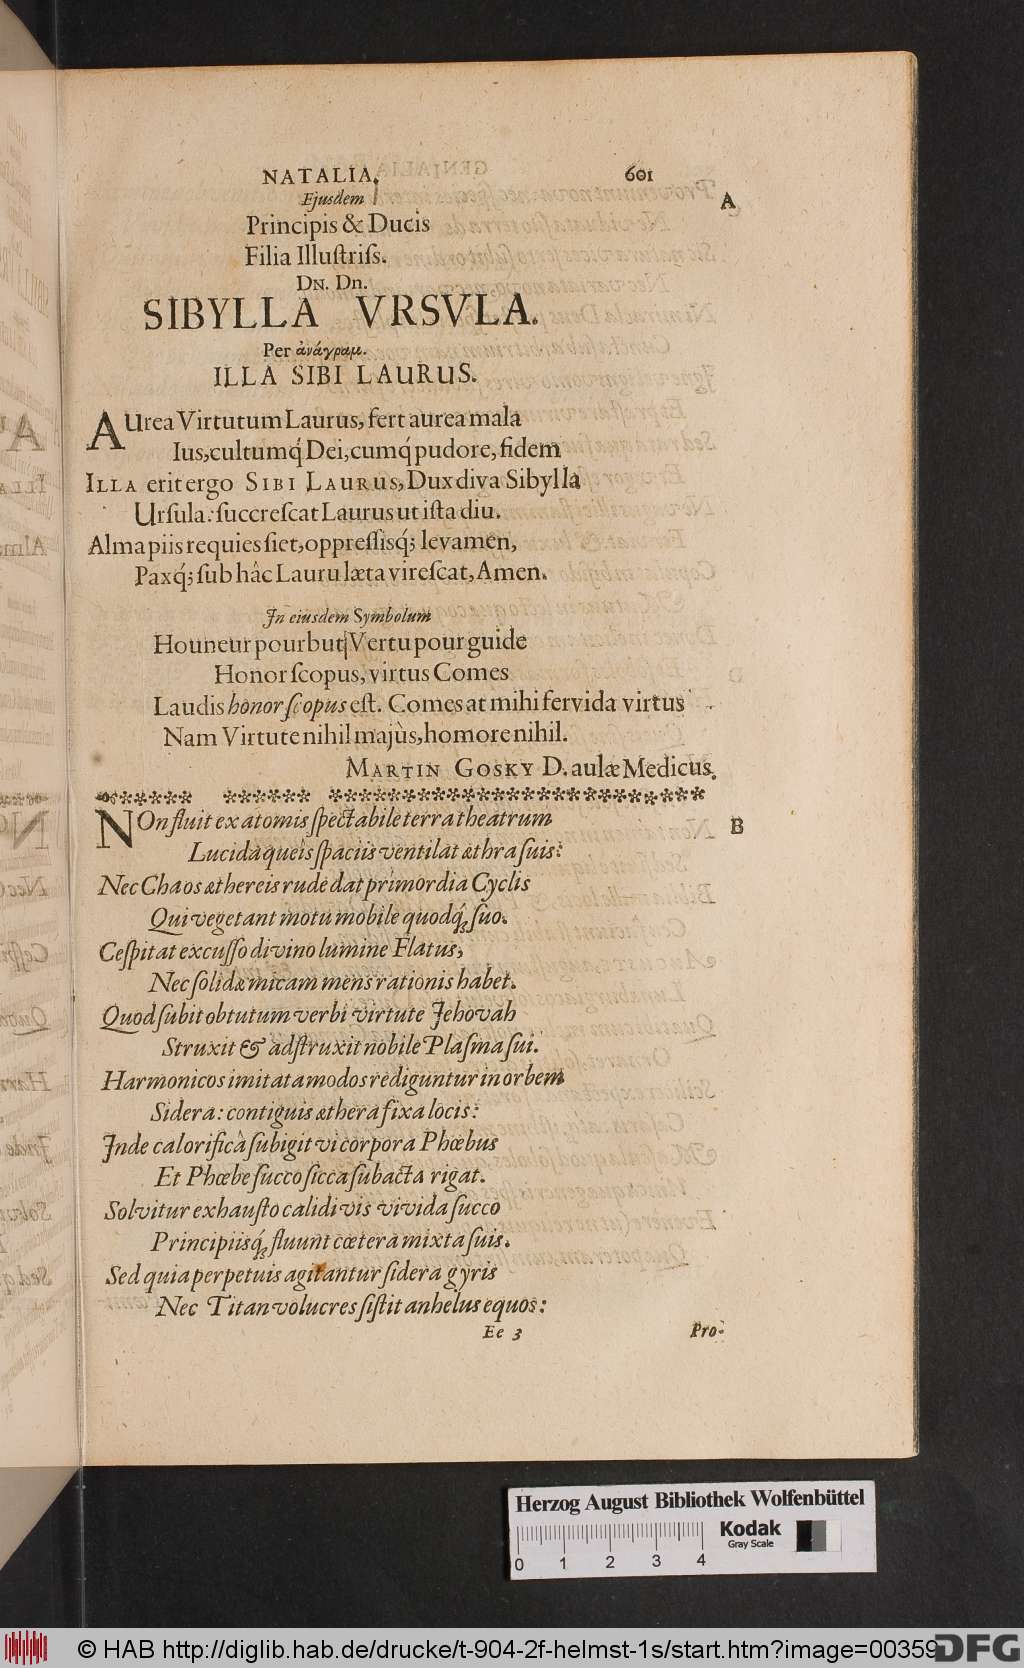 NATALIA. 601
Ejusdem A
Principis & Ducis
Filia Illuſtriſs.
Dn. Dn.
SIBYLLA VRSVLA.
Per ἀνάγραμ.
ILLA SIBI LAURUS.
AUrea Virtutum Laurus, fert aurea mala
Ius, cultumq́ Dei, cumq́ pudore, fidem
ILLA erit ergo SIBI LAURUS, Dux diva Sibylla
Urſula: ſuccreſcat Laurus ut iſta diu.
Alma piis requies ſiet, oppreſſisq́; levamen,
Paxq́; ſub hâc Lauru læta vireſcat, Amen.
In eiusdem Symbolum
Houneur pour but Vertu pour guide
Honor ſcopus, virtus Comes
Laudis honor ſcopus eſt. Comes at mihi fervida virtus
Nam Virtute nihil majùs, homore nihil.
MARTIN GOSKY D. aulæ Medicus.
NOn fluit ex atomis ſpectabile terra theatrum B
Lucida queis ſpaciis ventilat æthra ſuis:
Nec Chaos æthereis rude dat primordia Cyclis
Qui vegetant motu mobile quodq́; ſuo.
Ceſpitat excuſſo divino lumine Flatus,
Nec ſolidæ micam mens rationis habet.
Quod ſubit obtutum verbi virtute Jehovah
Struxit & adſtruxit nobile Plaſma ſui.
Harmonicos imitata modos rediguntur in orbem
Sidera: contiguis æthera fixa locis:
Inde calorificâ ſubigit vi corpora Phœbus
Et Phœbe ſucco ſicca ſubacta rigat.
Solvitur exhauſto calidi vis vivida ſucco
Principiisq́; fluunt cœtera mixta ſuis.
Sed quia perpetuis agitantur ſidera gyris
Nec Titan volucres ſiſtit anhelus equos:
Ee 3 Pro-
Herzog August Bibliothek Wolfenbüttel
Kodak
Gray Scale
0 1 2 3 4
© HAB http://diglib.hab.de/drucke/t-904-2f-helmst-1s/start.htm?image=00359
DFG